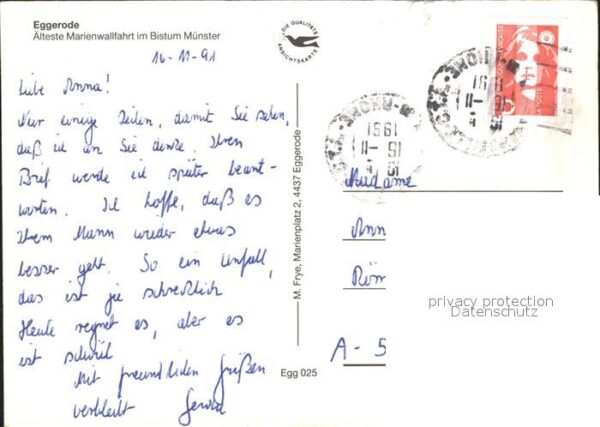 Eggerode
Älteste Marienwallfahrt im Bistum Münster
DIE QUALITÄTS
ANSICHTSKARTE
14-11-91
Liebe Anna!
Nur einige Zeilen, damit Sie sehen,
daß ich an Sie denke. Ihren
Brief werde ich später beant-
worten. Ich hoffe, daß es
Ihrem Mann wieder etwas
besser geht. So ein Unfall,
das ist je schrecklich
Heute regnet es, aber es
ist schwül
Mit freundlichen Grüßen
verbleibt
M. Frye, Marienplatz 2, 4437 Eggerode
Egg 025
RHONE
15-11
1991
Madame
Ann
Röm
A-5
privacy protection
Datenschutz